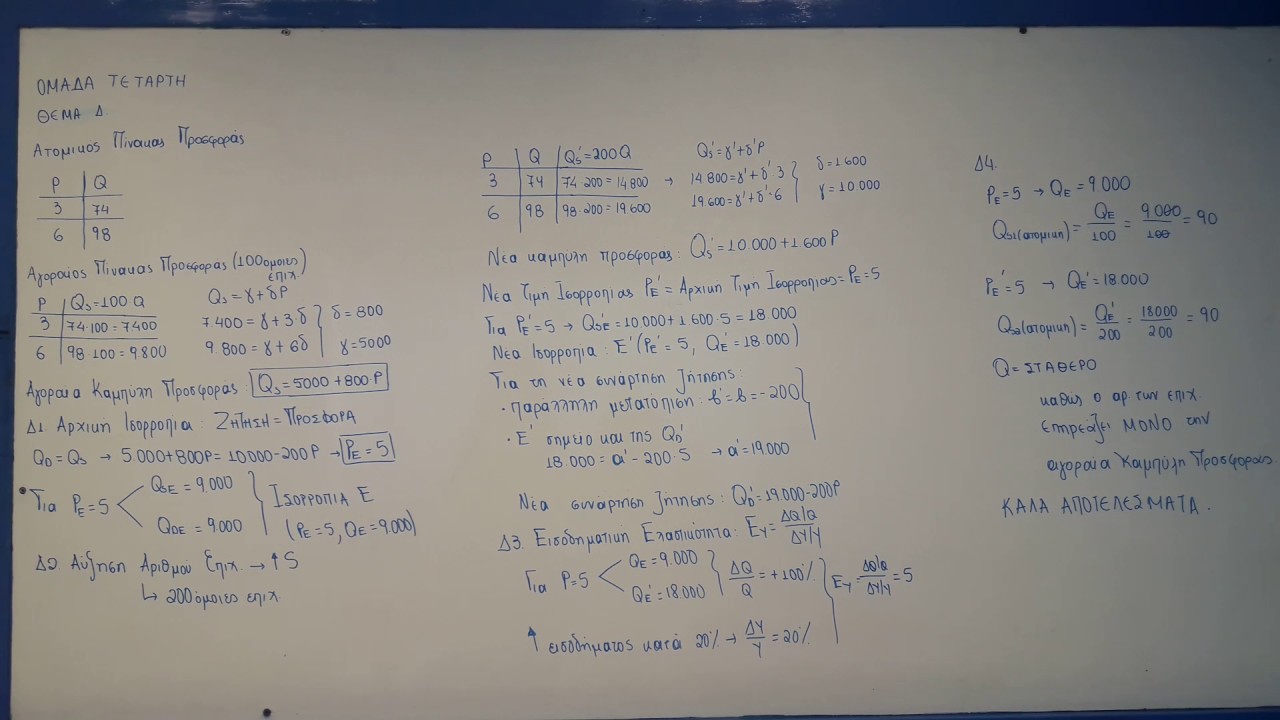 ΟΜΑΔΑ ΤΕΤΑΡΤΗ
ΘΕΜΑ Δ
Ατομικος Πινακας Προσφοράς
P | Q
3 | 74
6 | 98
Αγοραιος Πινακας Προσφορας (100 ομοιες επιχ)
P | Qs = 100 Q
3 | 74·100 = 7400
6 | 98·100 = 9800
Qs = γ + δP
7.400 = γ + 3·δ
9.800 = γ + 6δ
δ = 800
γ = 5000
Αγοραια Καμπύλη Προσφορας: Qs = 5000 + 800 P
Δ1. Αρχικη Ισορροπια: ΖΗΤΗΣΗ = ΠΡΟΣΦΟΡΑ
QD = QS → 5.000 + 800P = 10.000 - 200 P → PE = 5
Για PE = 5
QSE = 9.000
QDE = 9.000
ΙΣΟΡΡΟΠΙΑ Ε
(PE = 5, QE = 9.000)
Δ2. Αύξηση Αριθμου Επιχ. → ↑ S
↳ 200 όμοιες επιχ.
P | Q | Qs' = 200 Q
3 | 74 | 74·200 = 14.800
6 | 98 | 98·200 = 19.600
→
Qs' = γ' + δ'P
14.800 = γ' + δ'·3
19.600 = γ' + δ'·6
δ = 1600
γ = 10.000
Νεα καμπύλη προσφορας: Qs' = 10.000 + 1.600 P
Νεα Τιμη Ισορροπιας PE' = Αρχικη Τιμη Ισορροπιας = PE = 5
Για PE' = 5 → QSE' = 10.000 + 1.600·5 = 18.000
Νεα Ισορροπια: E' (PE' = 5, QE' = 18.000)
Για τη νέα συνάρτηση ζήτησης:
· παράλληλη μετατόπιση: b' = b = -200
· E' σημείο και της QD'
18.000 = α' - 200·5 → α' = 19.000
Νέα συνάρτηση ζήτησης: QD' = 19.000 - 200P
Δ3. Εισοδηματικη Ελαστικότητα: EY = ΔQ/Q / ΔY/Y
Για P = 5
QE = 9.000
QE' = 18.000
ΔQ/Q = +100%
EY = ΔQ/Q / ΔY/Y = 5
↑ εισοδήματος κατά 20% → ΔY/Y = 20%
Δ4.
PE = 5 → QE = 9.000
QS1(ατομικη) = QE/100 = 9.000/100 = 90
PE' = 5 → QE' = 18.000
QS2(ατομικη) = QE'/200 = 18000/200 = 90
Q = ΣΤΑΘΕΡΟ
καθως ο αρ των επιχ.
επηρεάζει ΜΟΝΟ την
αγοραία Καμπύλη Προσφορας
ΚΑΛΑ ΑΠΟΤΕΛΕΣΜΑΤΑ.